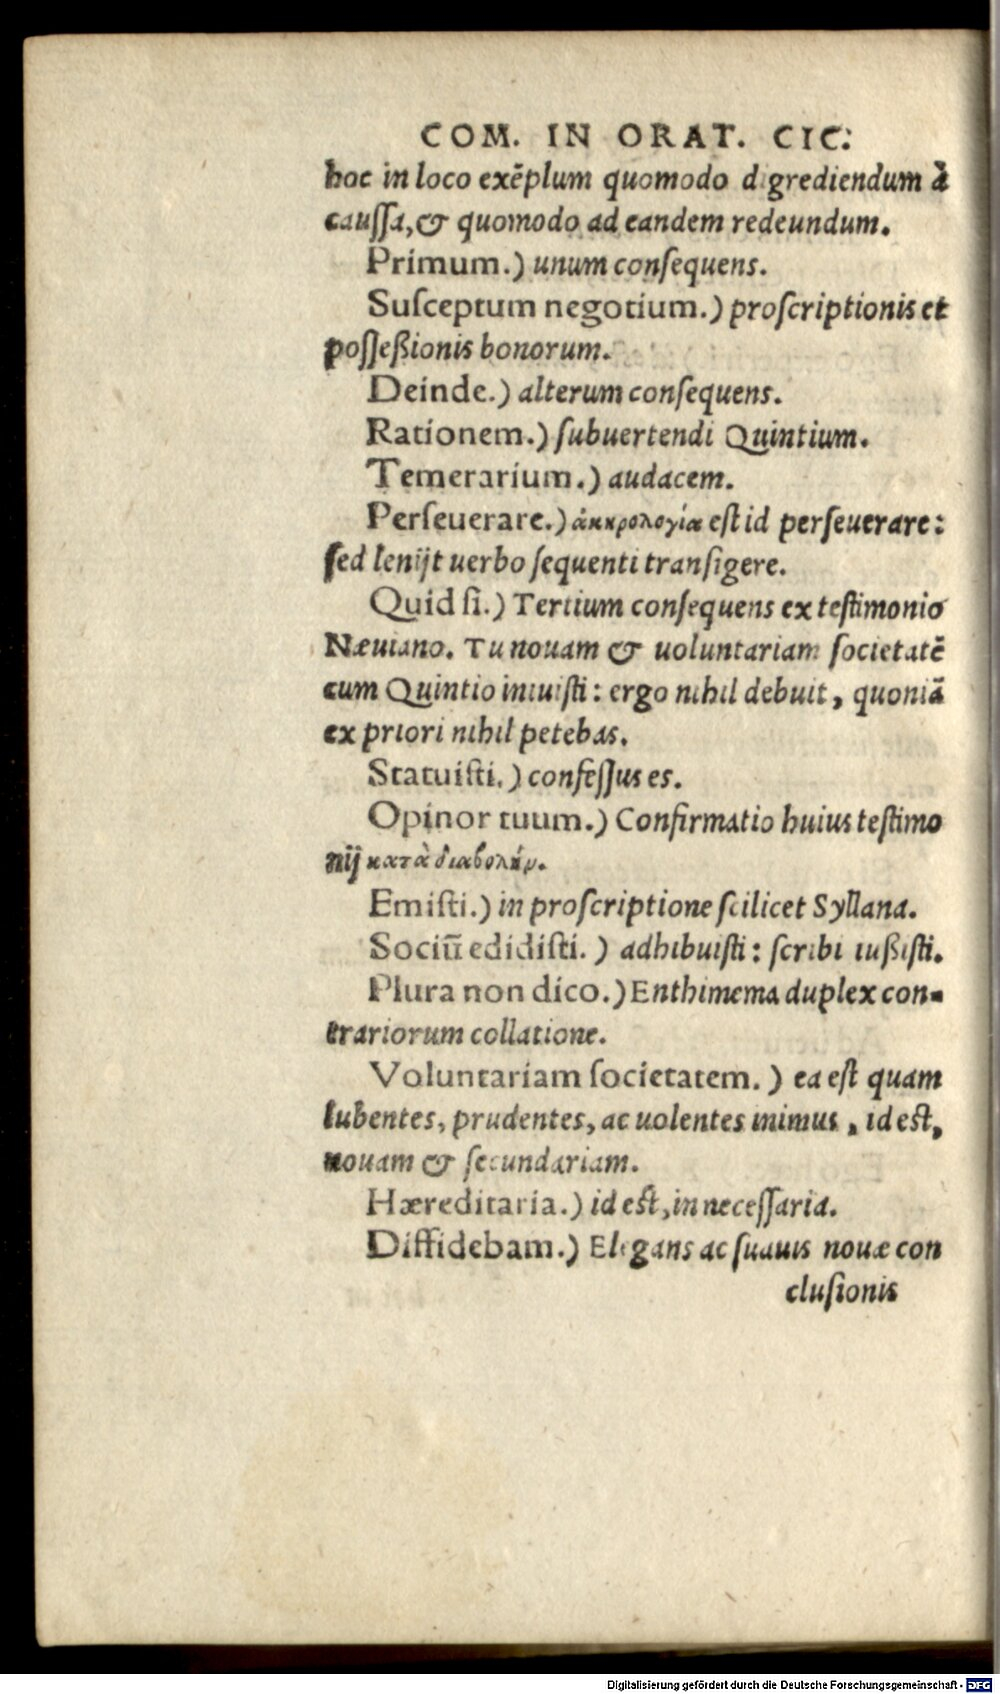 COM. IN ORAT. CIC:
hoc in loco exẽplum quomodo digrediendum à
cauſſa, & quomodo ad eandem redeundum.
Primum.) unum conſequens.
Suſceptum negotium.) proſcriptionis et
poſſeßionis bonorum.
Deinde.) alterum conſequens.
Rationem.) ſubuertendi Quintium.
Temerarium.) audacem.
Perſeuerare.) ἀκκρολογία eſt id perſeuerare:
ſed lenijt uerbo ſequenti tranſigere.
Quid ſi.) Tertium conſequens ex teſtimonio
Næuiano. Tu nouam & uoluntariam ſocietatẽ
cum Quintio iniuiſti: ergo nihil debuit, quoniã
ex priori nihil petebas.
Statuiſti.) confeſſus es.
Opinor tuum.) Confirmatio huius teſtimo
nij κατὰ διαβολήν.
Emiſti.) in proſcriptione ſcilicet Syllana.
Sociũ edidiſti.) adhibuiſti: ſcribi iußiſti.
Plura non dico.) Enthimema duplex con-
trariorum collatione.
Voluntariam ſocietatem.) ea eſt quam
lubentes, prudentes, ac uolentes inimus, id eſt,
nouam & ſecundariam.
Hæreditaria.) id eſt, in neceſſaria.
Diffidebam.) Elegans ac ſuauis nouæ con
cluſionis
Digitalisierung gefördert durch die Deutsche Forschungsgemeinschaft - DFG